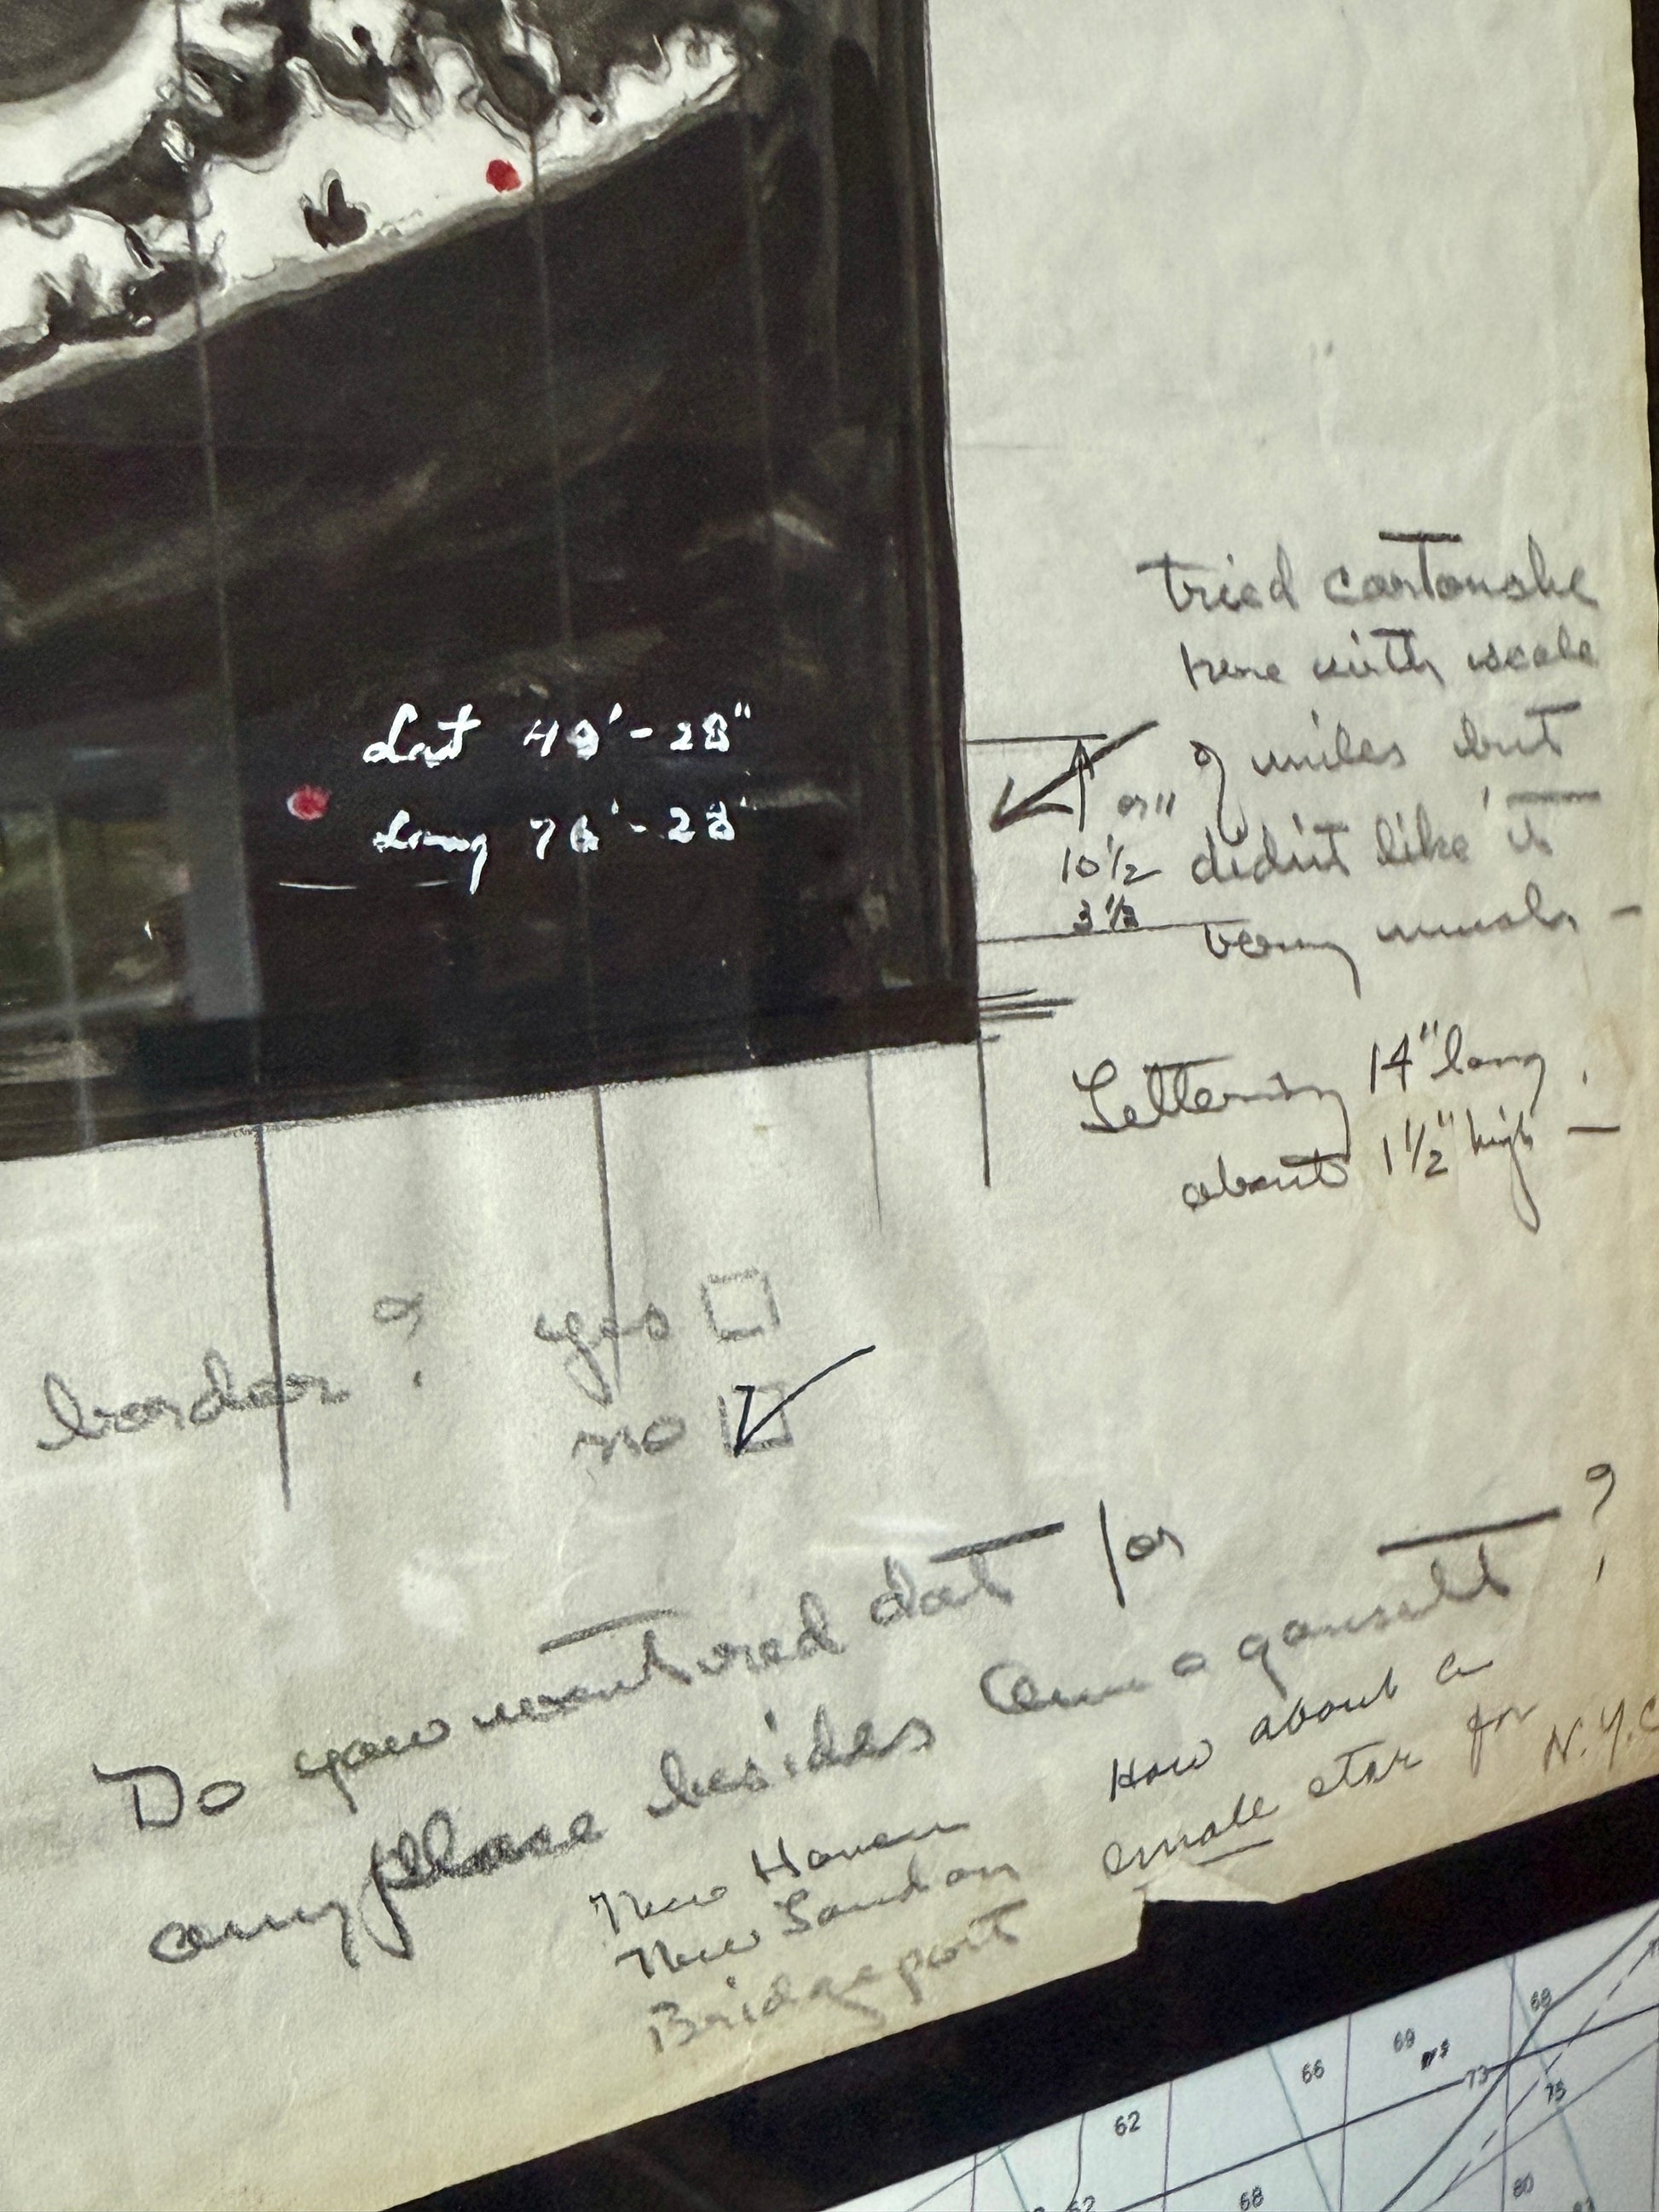 Lat 40'-28"
Long 76'-28'
tried cartouche
here with scale
of miles but
or"
10 1/2 didn't like it
3 1/2
very much -
Lettering 14" long
about 1 1/2" high -
border? yes
no
Do you want red dot for
any place besides Amagansett?
New Haven
New London
Bridgeport
How about a
small star for
N.Y.C
62
66
69
69
73
75
62
68
80